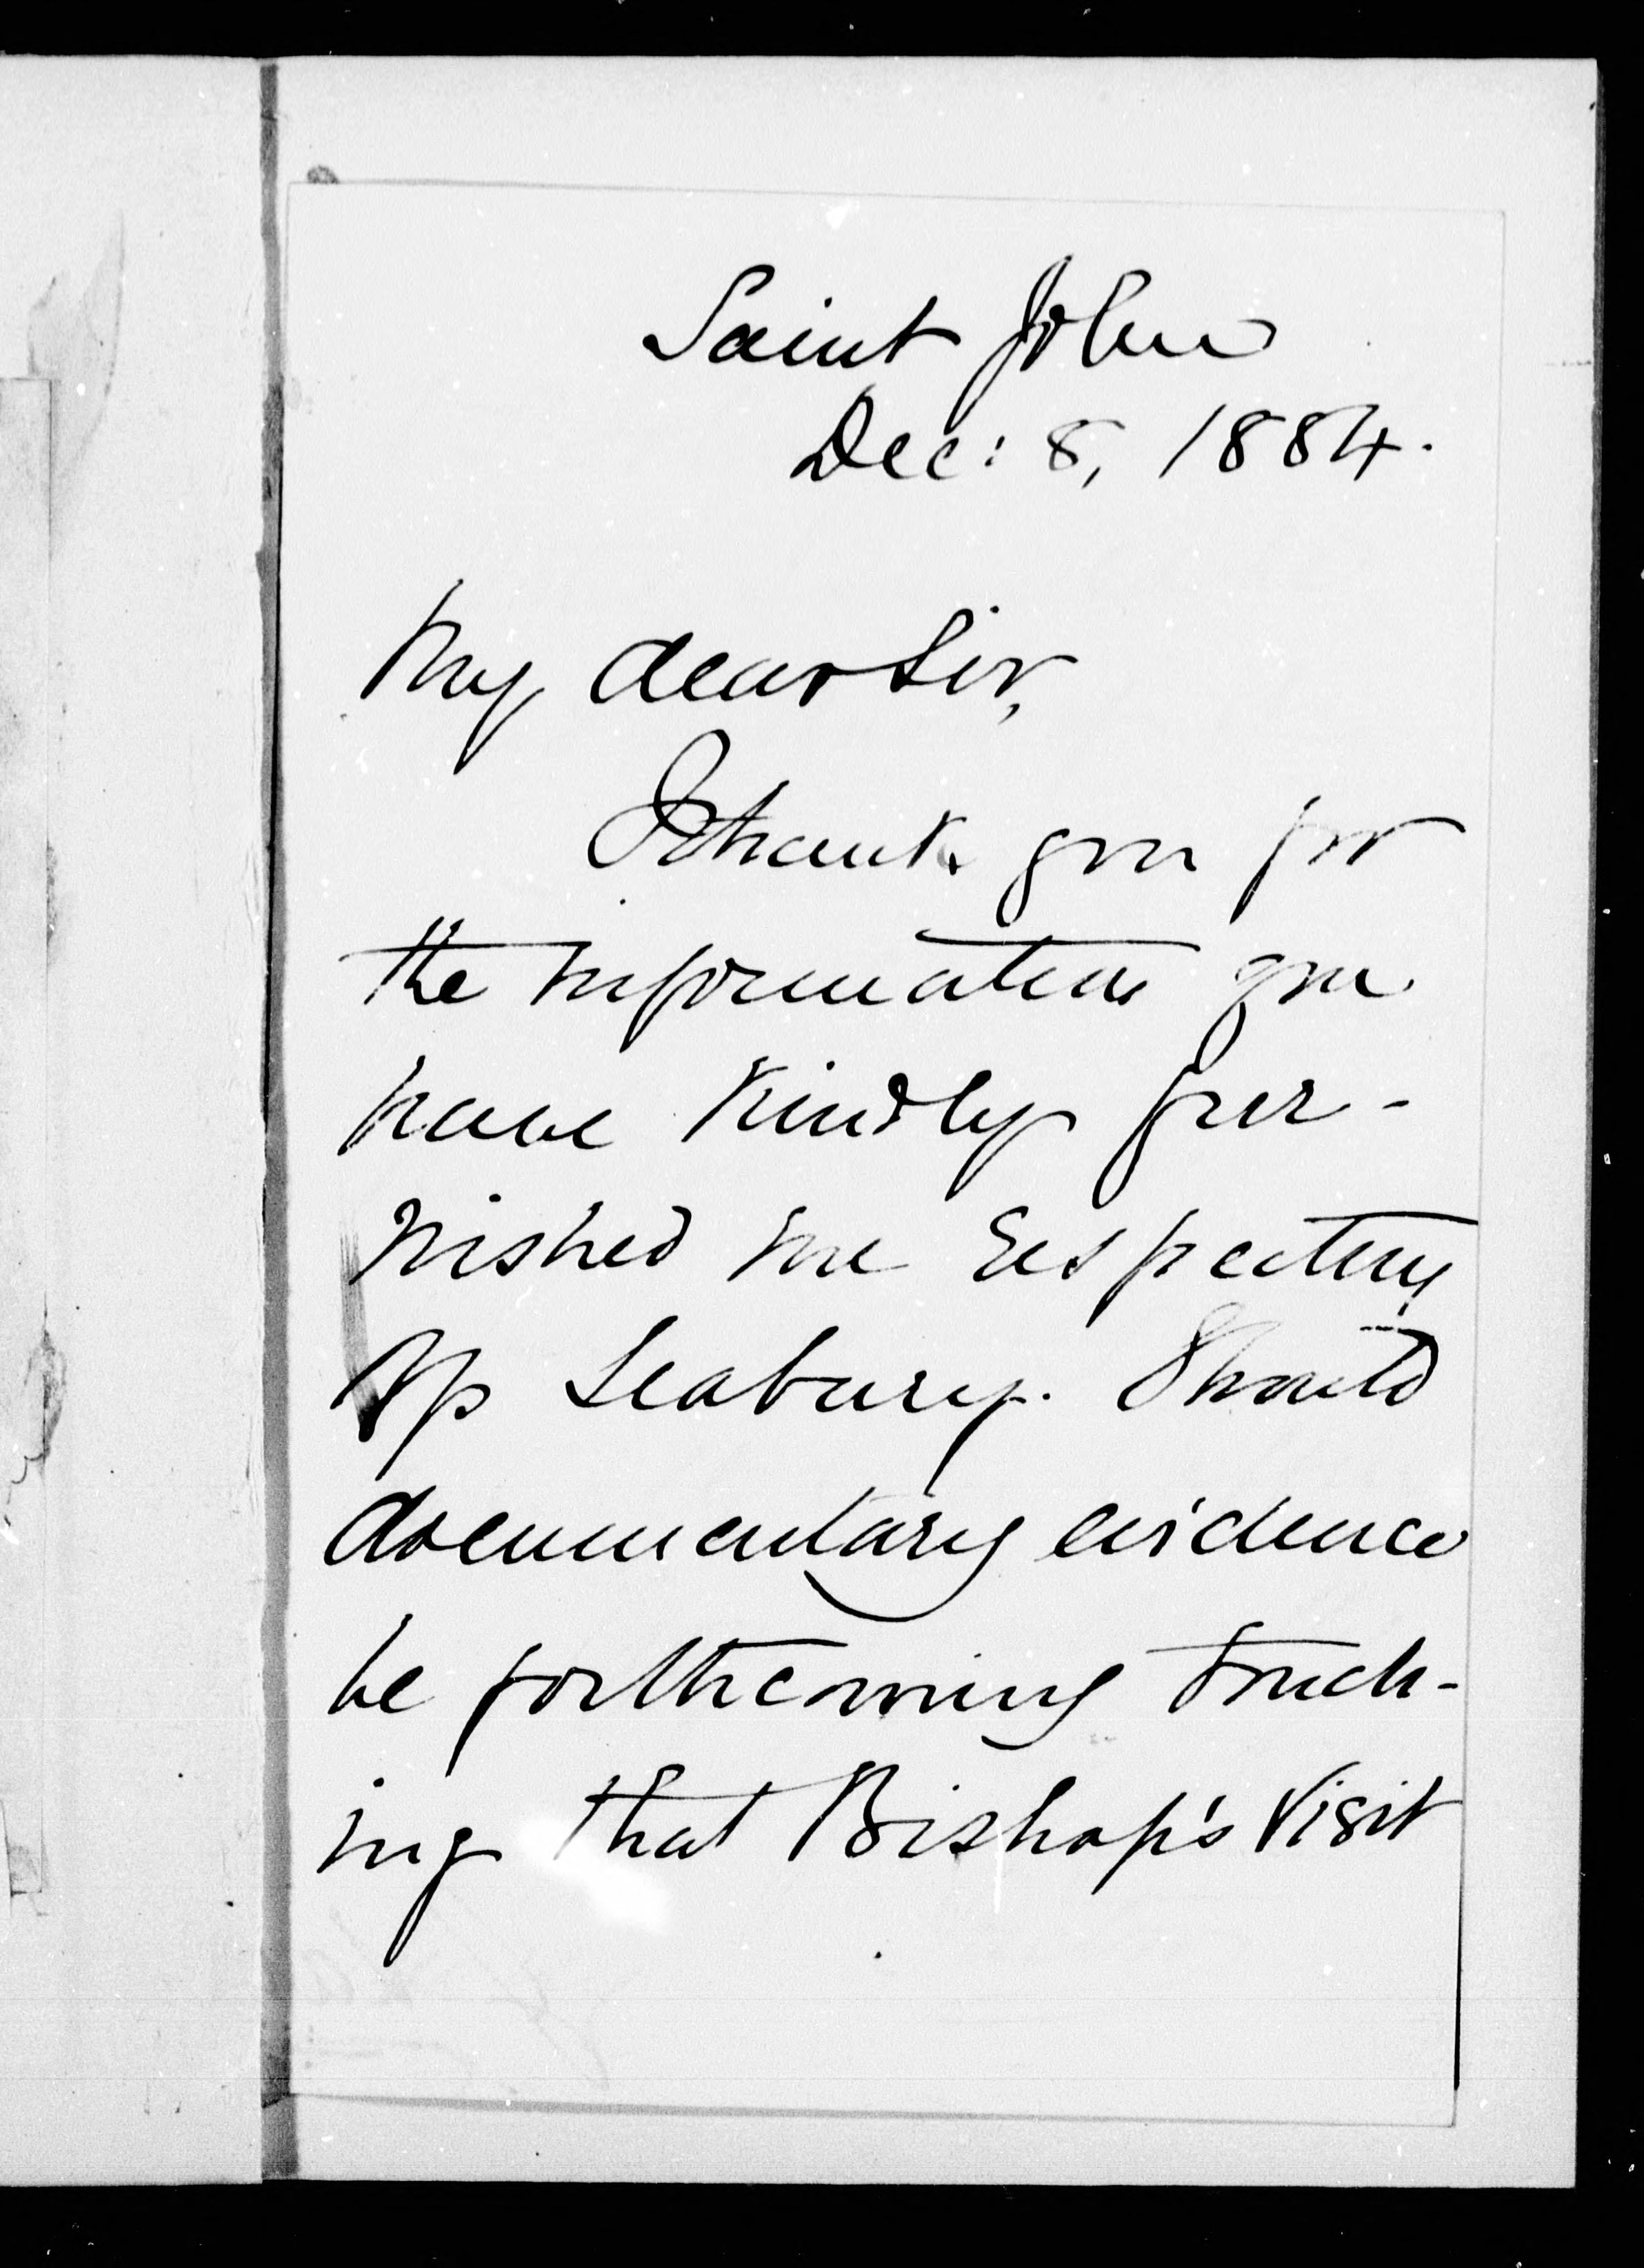 Saint John
Dec: 8, 1884.
My dear Sir,
I thank you for
the information you
have kindly fur-
nished me respecting
Bp Seabury. Should
documentary evidence
be forthcoming touch-
ing that Bishop's visit